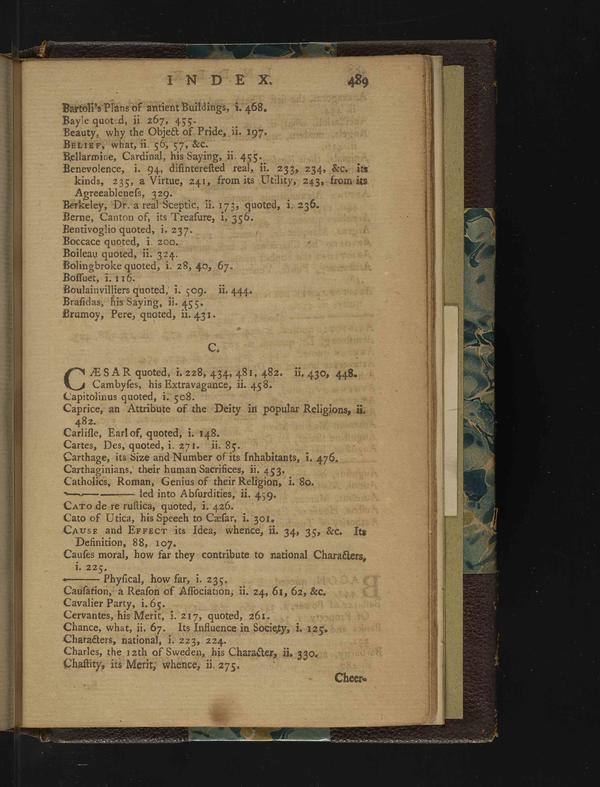 INDEX. 489
Bartoli's Plans of antient Buildings, i. 468.
Bayle quoted, ii 267, 455.
Beauty, why the Object of Pride, ii. 197.
BELIEF, what, ii. 56, 57, &c.
Bellarmine, Cardinal, his Saying, ii. 455.
Benevolence, i. 94, disinterested real, ii. 233, 234, &c. its
kinds, 235, a Virtue, 241, from its Utility, 243, from its
Agreeableness, 329.
Berkeley, Dr. a real Sceptic, ii. 173, quoted, i. 236.
Berne, Canton of, its Treasure, i, 356.
Bentivoglio quoted, i. 237.
Boccace quoted, i. 200.
Boileau quoted, ii. 324.
Bolingbroke quoted, i. 28, 40, 67.
Bossuet, i. 116.
Boulainvilliers quoted, i. 509. ii. 444.
Brasidas, his Saying, ii. 455.
Brumoy, Pere, quoted, ii. 431.
C.
CÆSAR quoted, i. 228, 434, 481, 482. ii. 430, 448.
Cambyses, his Extravagance, ii. 458.
Capitolinus quoted, i. 508.
Caprice, an Attribute of the Deity in popular Religions, ii.
482.
Carlisle, Earl of, quoted, i. 148.
Cartes, Des, quoted, i. 271. ii. 85.
Carthage, its Size and Number of its Inhabitants, i. 476.
Carthaginians, their human Sacrifices, ii. 453.
Catholics, Roman, Genius of their Religion, i. 80.
led into Absurdities, ii. 459.
CATO de re rustica, quoted, i. 426.
Cato of Utica, his Speech to Cæsar, i. 301.
CAUSE and EFFECT its Idea, whence, ii. 34, 35, &c. Its
Definition, 88, 107.
Causes moral, how far they contribute to national Characters,
i. 225.
Physical, how far, i. 235.
Causation, a Reason of Association, ii. 24, 61, 62, &c.
Cavalier Party, i. 65.
Cervantes, his Merit, i. 217, quoted, 261.
Chance, what, ii. 67. Its Influence in Society, i. 125.
Characters, national, i. 223, 224.
Charles, the 12th of Sweden, his Character, ii. 330.
Chastity, its Merit, whence, ii. 275.
Cheer-